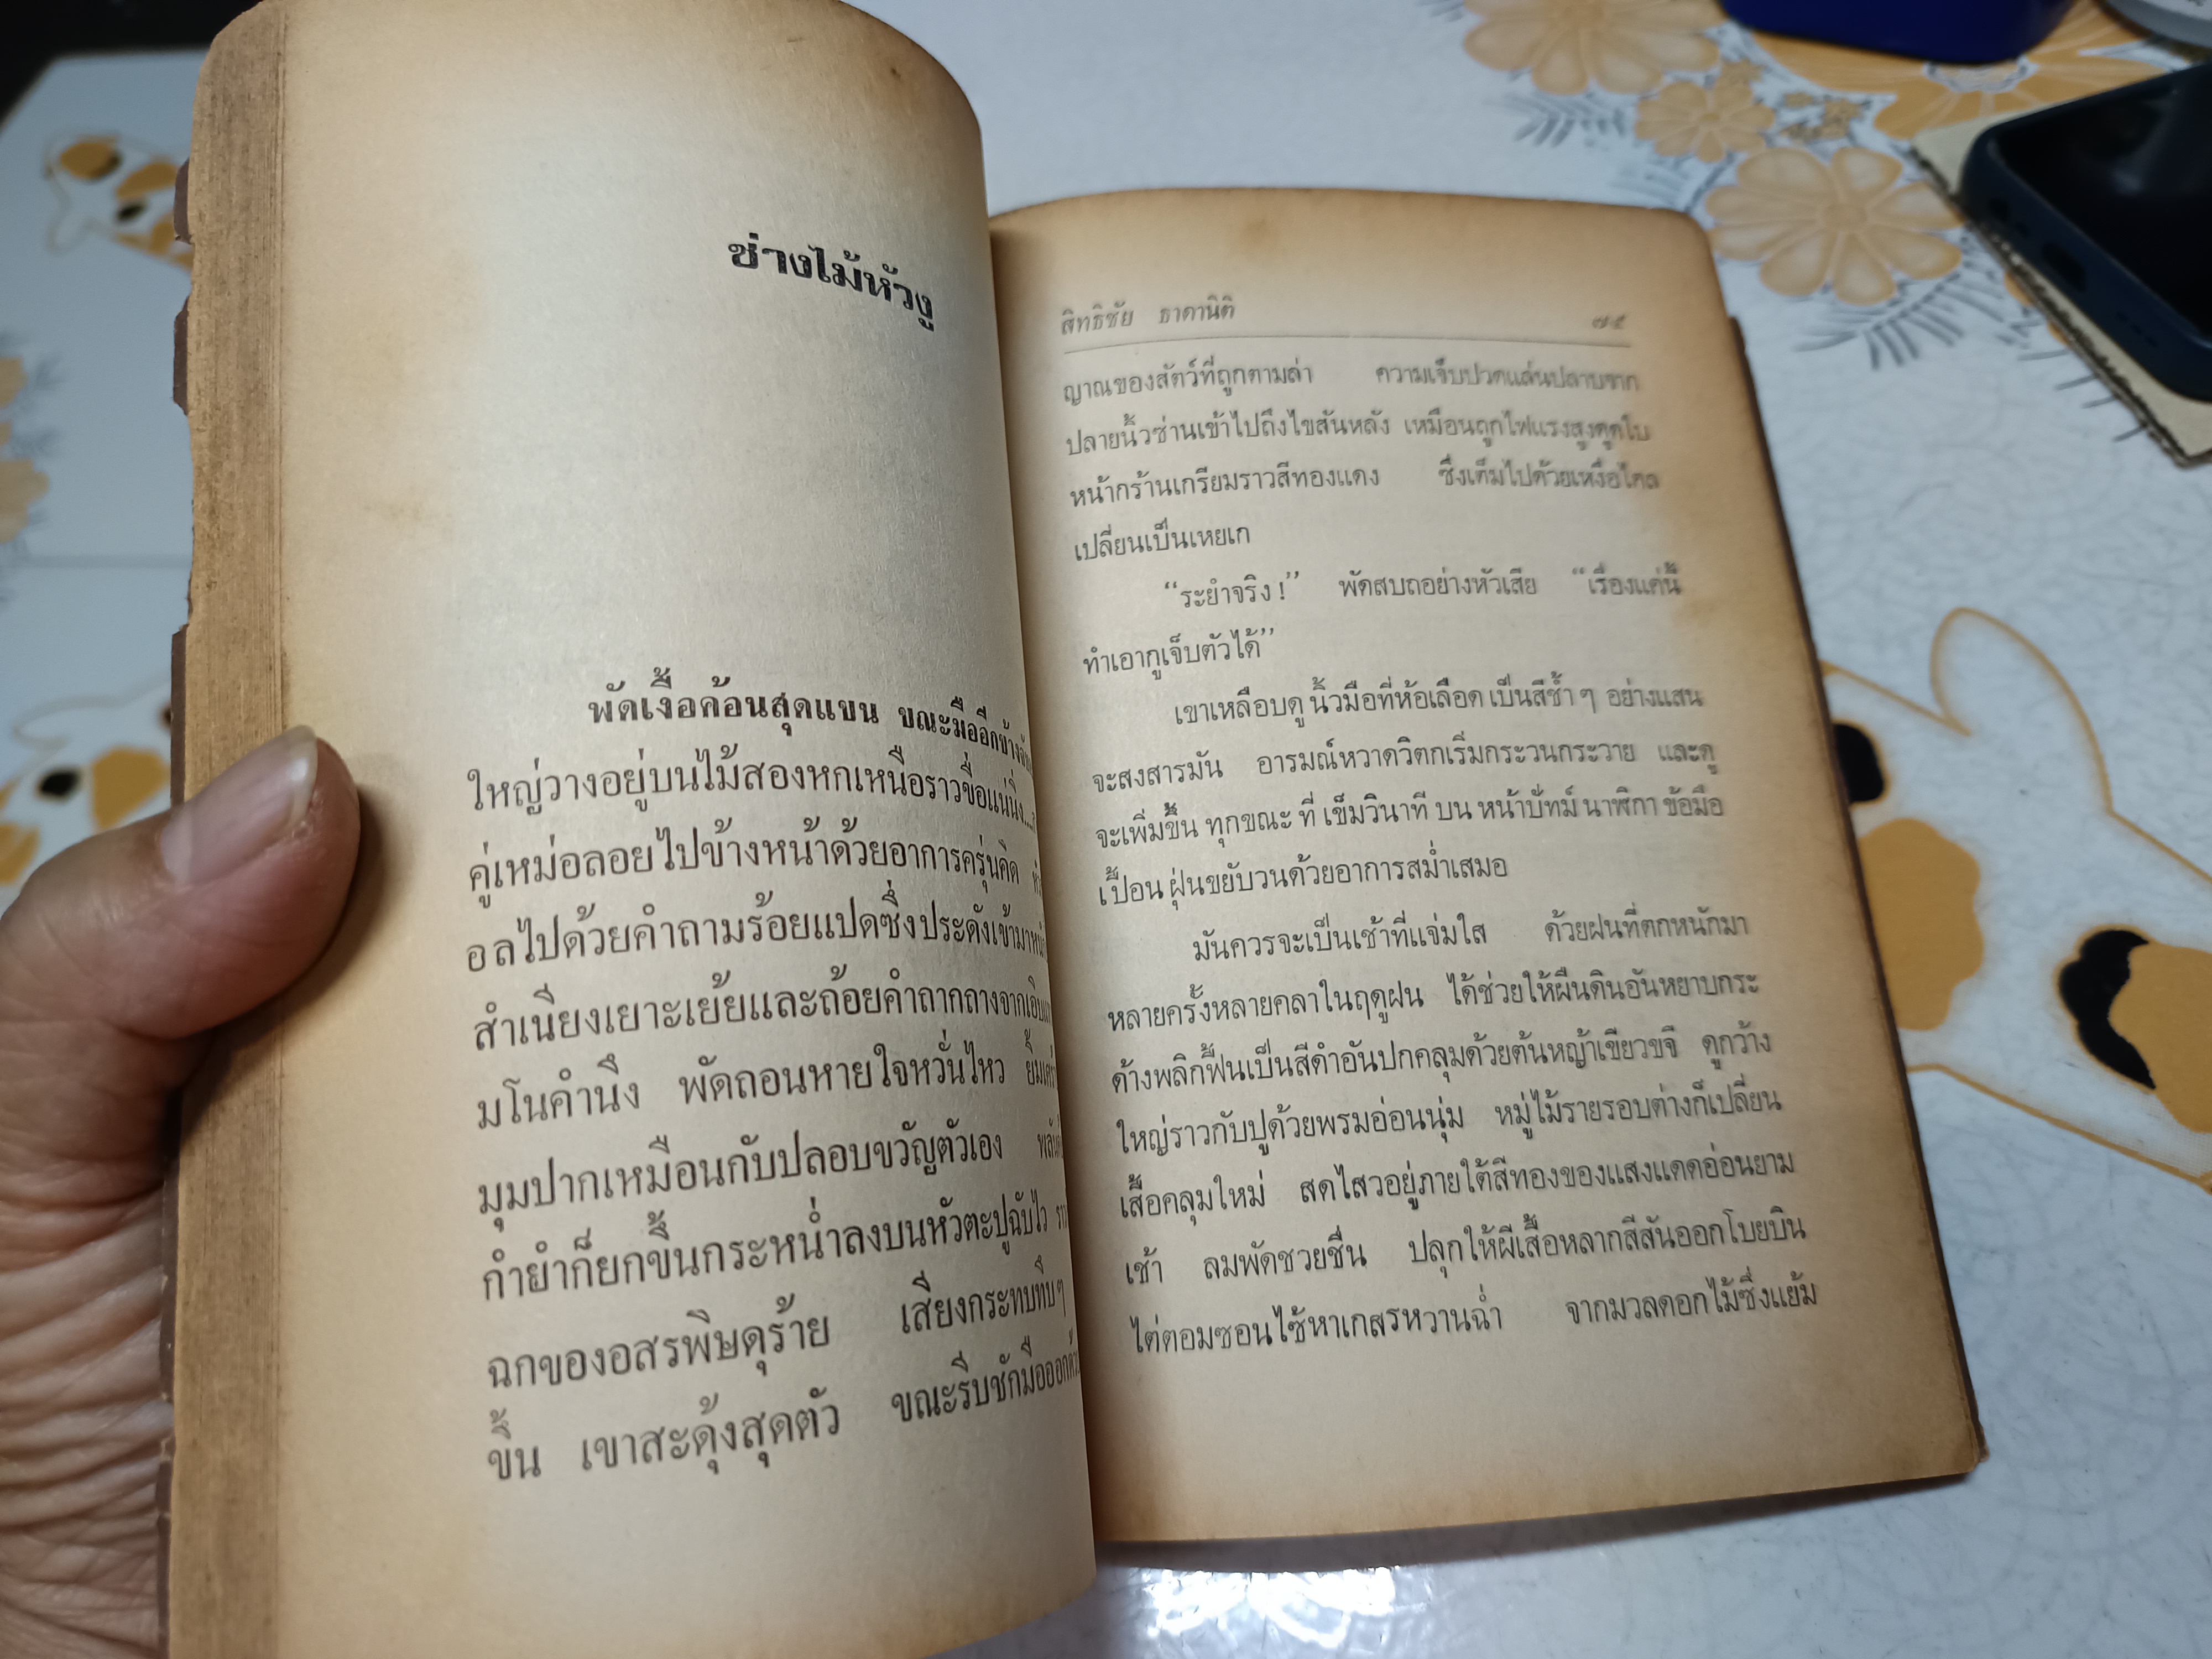 ช่างไม้หัวงู
พัดเงื้อค้อนสุดแขน ขณะมืออีกข้าง
ใหญ่วางอยู่บนไม้สองหกเหนือราวขื่อแน่นิ่ง....
คู่เหม่อลอยไปข้างหน้าด้วยอาการครุ่นคิด
อลไปด้วยคำถามร้อยแปดซึ่งประดังเข้ามา
สำเนียงเยาะเย้ยและถ้อยคำถากถางจาก
มโนคำนึง พัดถอนหายใจหวั่นไหว ยิ้ม
มุมปากเหมือนกับปลอบขวัญตัวเอง
กำยำก็ยกขึ้นกระหน่ำลงบนหัวตะปูฉับไว
ฉกของอสรพิษดุร้าย เสียงกระทบทึบๆ
ขึ้น เขาสะดุ้งสุดตัว ขณะรีบชักมือออก
สิทธิชัย ธาดานิติ ๗๕
ญาณของสัตว์ที่ถูกตามล่า ความเจ็บปวดแล่นปลาบจาก
ปลายนิ้วซ่านเข้าไปถึงไขสันหลัง เหมือนถูกไฟแรงสูงดูดใบ
หน้ากร้านเกรียมราวสีทองแดง ซึ่งเต็มไปด้วยเหงื่อไคล
เปลี่ยนเป็นเหยเก
“ระยำจริง !” พัดสบถอย่างหัวเสีย “เรื่องแค่นี้
ทำเอากูเจ็บตัวได้”
เขาเหลือบดู นิ้วมือที่ห้อเลือด เป็นสีช้ำๆ อย่างแสน
จะสงสารมัน อารมณ์หวาดวิตกเริ่มกระวนกระวาย และดู
จะเพิ่มขึ้น ทุกขณะ ที่ เข็มวินาที บน หน้าปัทม์ นาฬิกา ข้อมือ
เปื้อน ฝุ่นขยับวนด้วยอาการสม่ำเสมอ
มันควรจะเป็นเช้าที่แจ่มใส ด้วยฝนที่ตกหนักมา
หลายครั้งหลายคลาในฤดูฝน ได้ช่วยให้ผืนดินอันหยาบกระ
ด้างพลิกฟื้นเป็นสีดำอันปกคลุมด้วยต้นหญ้าเขียวขจี ดูกว้าง
ใหญ่ราวกับปูด้วยพรมอ่อนนุ่ม หมู่ไม้รายรอบต่างก็เปลี่ยน
เสื้อคลุมใหม่ สดไสวอยู่ภายใต้สีทองของแสงแดดอ่อนยาม
เช้า ลมพัดชวยชื่น ปลุกให้ผีเสื้อหลากสีสันออกโบยบิน
ไต่ตอมซอนไซ้หาเกสรหวานฉ่ำ จากมวลดอกไม้ซึ่งแย้ม